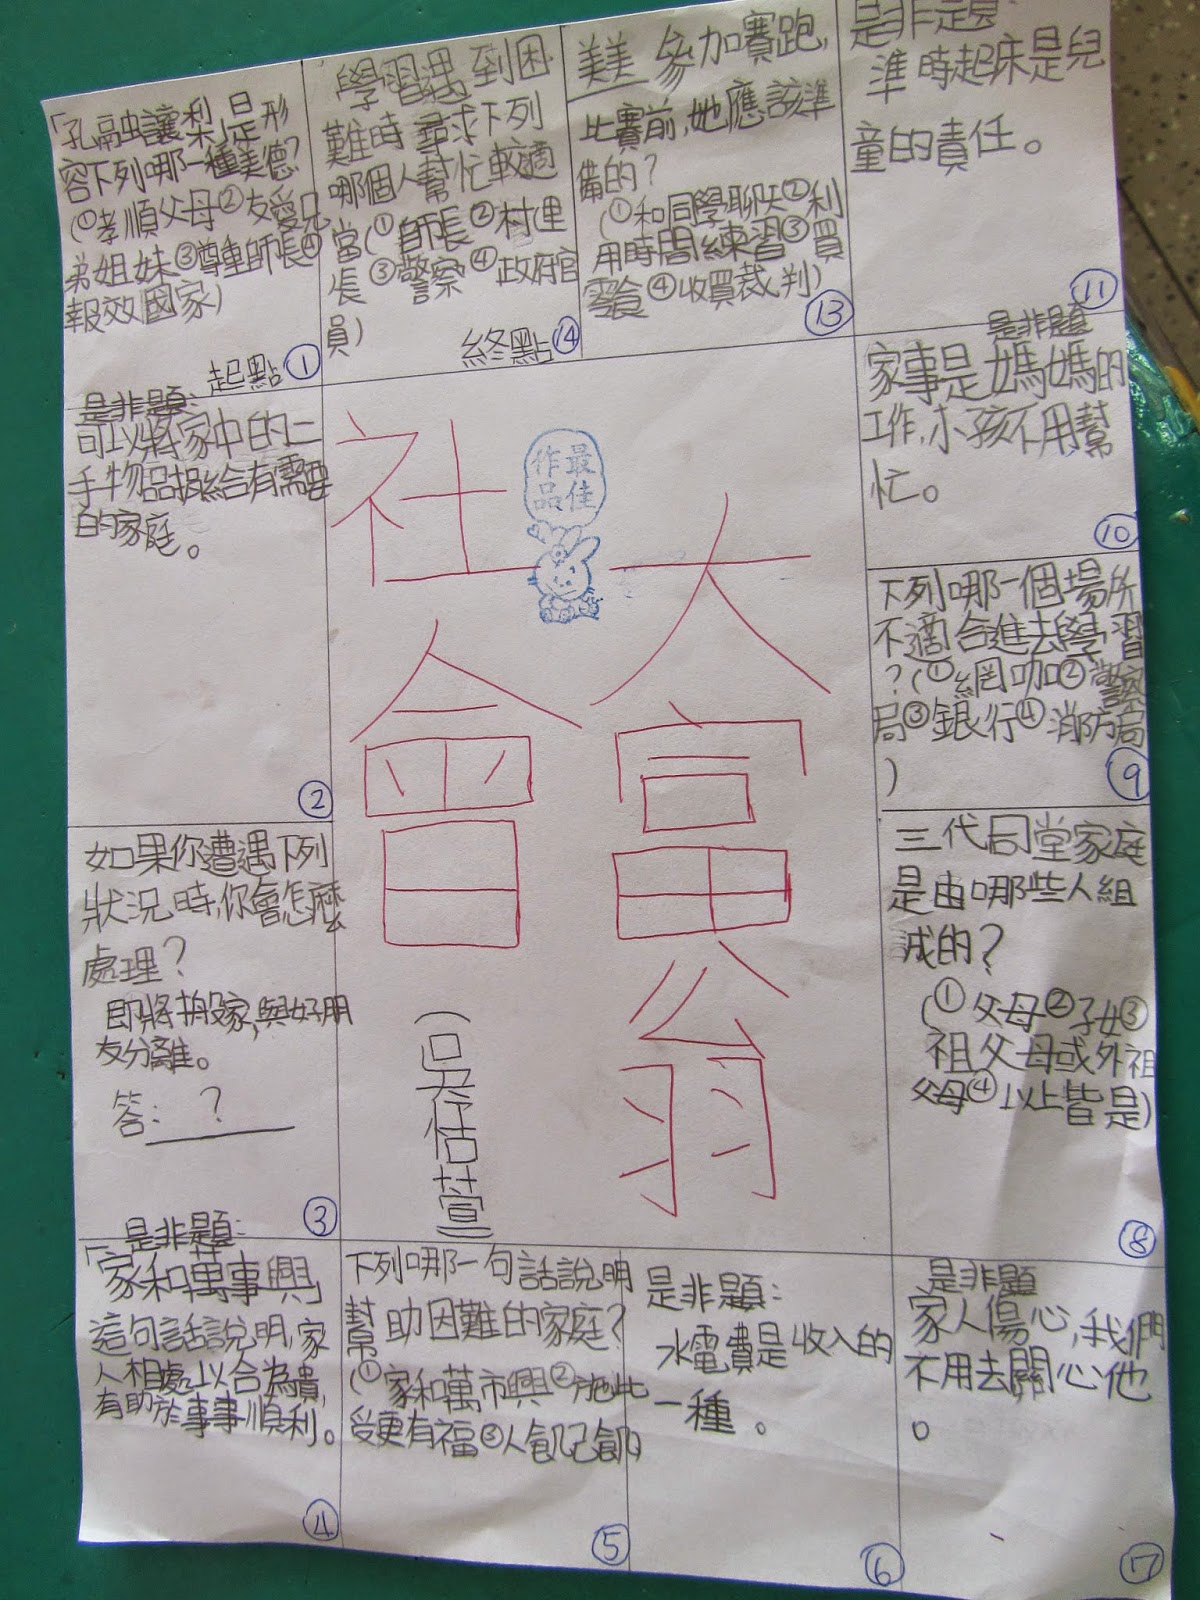 「孔融讓梨」是形
容下列哪一種美德?
(①孝順父母②友愛兄
弟姐妹③尊重師長④
報效國家)
起點①
是非題:
可以將家中的二
手物品捐給有需要
的家庭。
②
如果你遭遇下列
狀況時,你會怎麼
處理?
即將搬家,與好朋
友分離。
答:?
③
是非題:
「家和萬事興」
這句話說明,家
人相處以合為貴,
有助於事事順利。
④
下列哪一句話說明
幫助困難的家庭?
(①家和萬市興②施比
受更有福③人飢己飢)
⑤
是非題:
水電費是收入的
一種。
⑥
是非題
家人傷心,我們
不用去關心他
。
⑦
三代同堂家庭
是由哪些人組
成的?
(①父母②子女③
祖父母或外祖
父母④以上皆是)
⑧
下列哪一個場所
不適合進去學習
?(①網咖②警察
局③銀行④消防局
)
⑨
是非題
家事是媽媽的
工作,小孩不用幫
忙。
⑩
是非題:
準時起床是兒
童的責任。
⑪
美美參加賽跑,
比賽前,她應該準
備的?
(①和同學聊天②利
用時間練習③買
零食④收買裁判)
⑬
學習遇到困
難時尋求下列
哪個人幫忙較適
當(①師長②村里
長③警察④政府官
員)
終點⑭
社會
大富翁
最佳
作品
(呂恬萱)